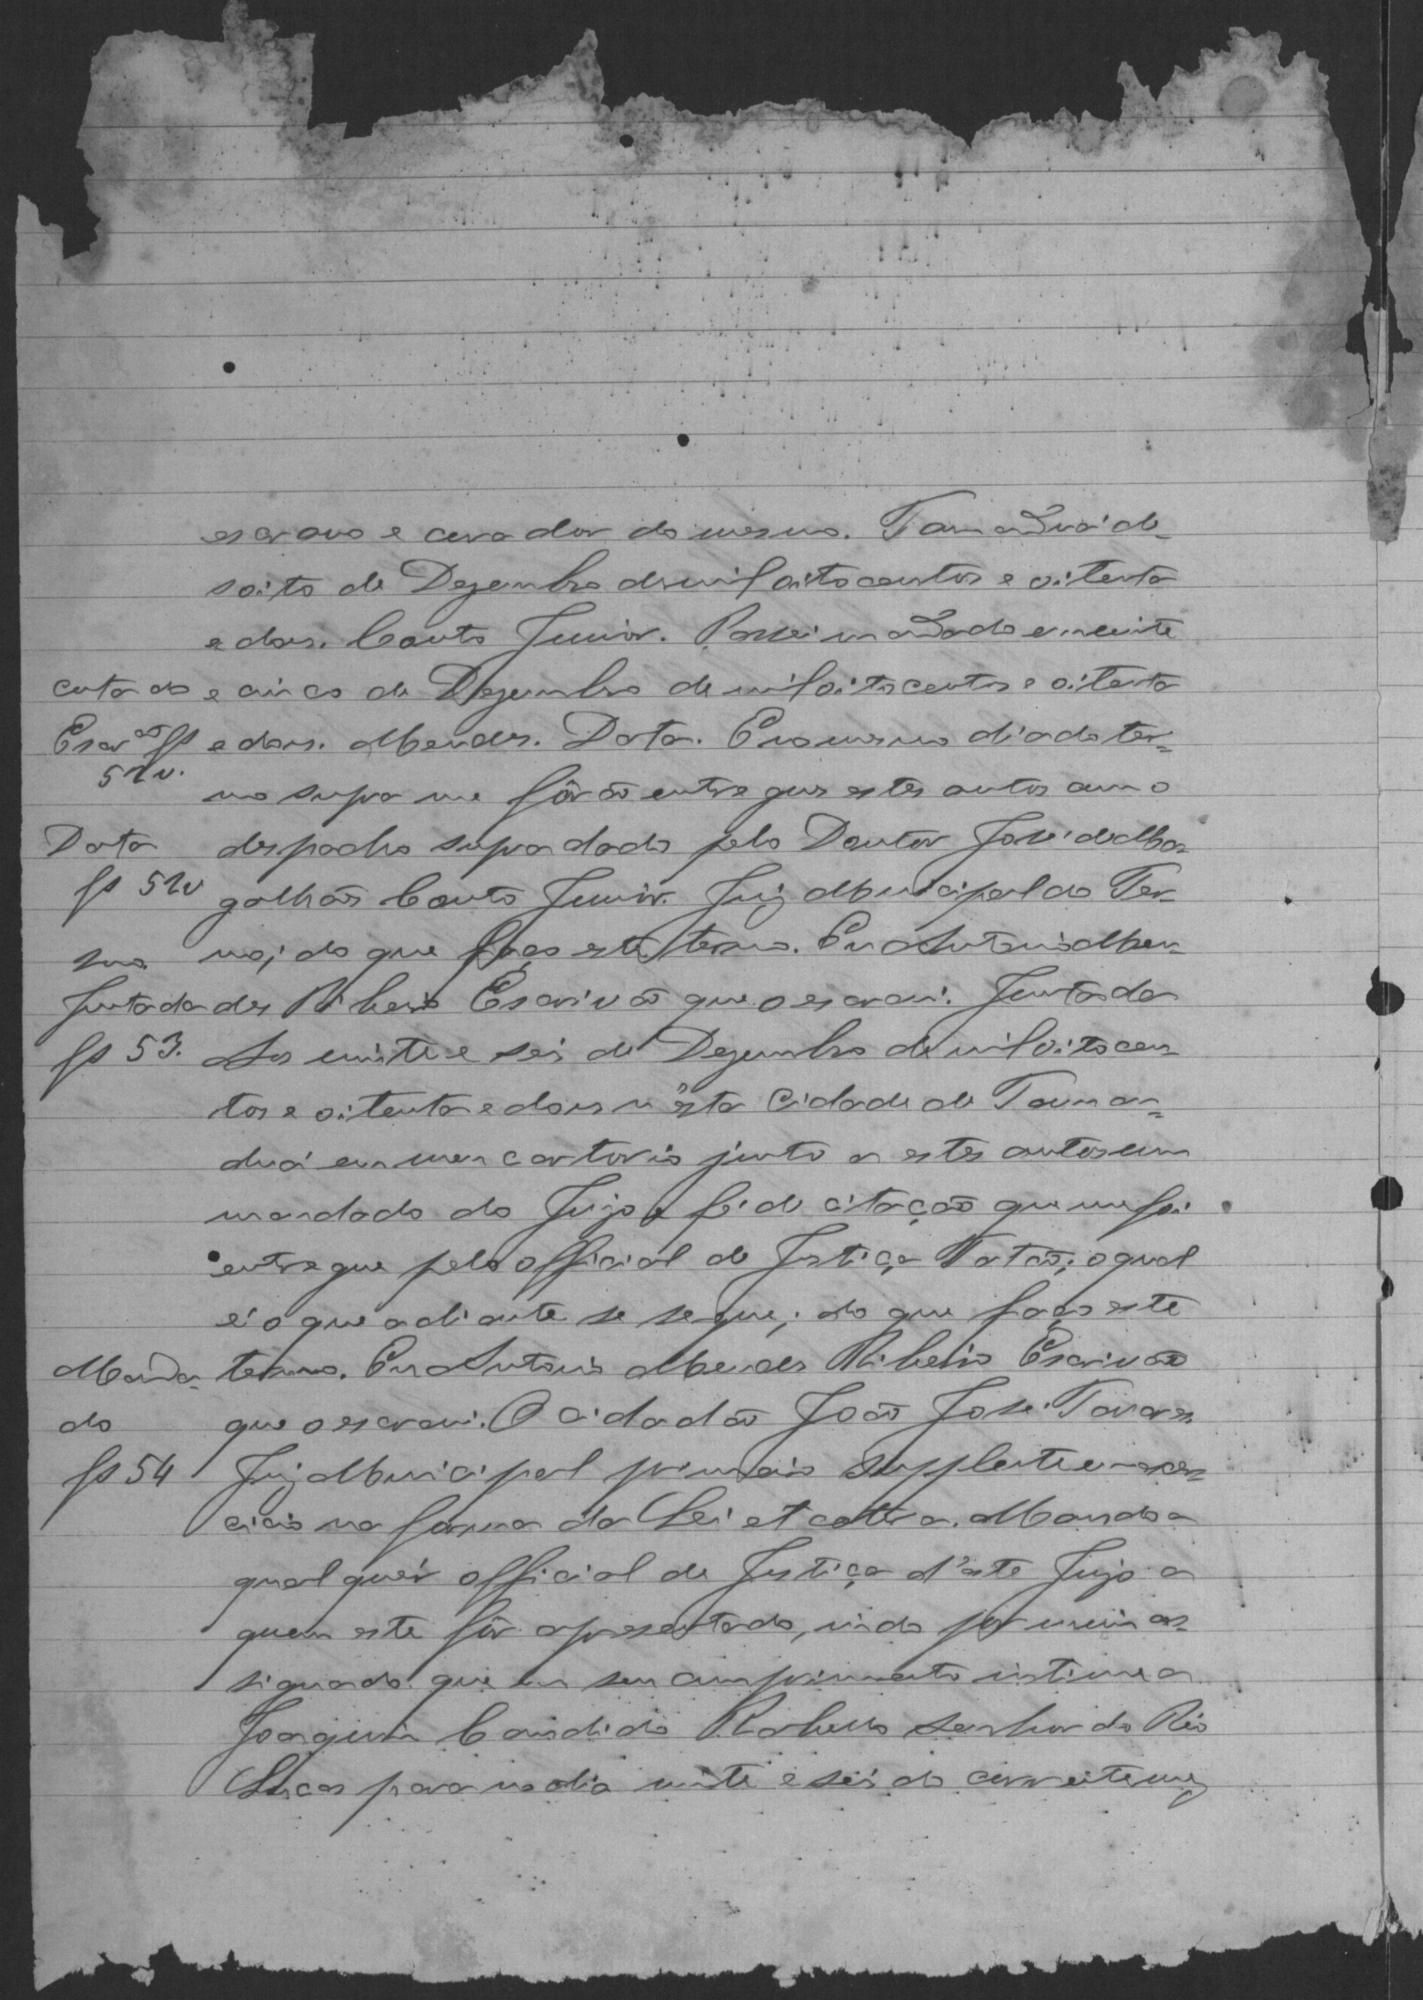 escravo e curador do mesmo. Tamanduá de-
soito de Dezembro de mil oito centos e oitenta
e dous. Couto Junior. Passei mandado em vinte
cota do
e cinco de Dezembro de mil oito centos e oitenta
Escr.ão fs
e dous. Mendes. Data. E no mesmo dia do ter-
52v.
mo supra me fôrão entregues estes autos com o
Data
despacho supra dado pelo Doutor José de Ma-
fs 52v
galhães Couto Junior Juiz Municipal do Ter-
mo; do que faço este termo. Eu Antonio Men-
Juntada
des Ribeiro Escrivão que o escrevi. Juntada
fs 53.
Aos vinte e seis de Dezembro de mil oito cen-
tos e oitenta e dous n'esta Cidade de Taman-
duá em meu cartorio junto a estes autos um
mandado do Juizo e fé de citação que me foi
entregue pelo official de Justiça Tatão; o qual
é o que adiante se segue; do que faço este
Manda-
termo. Eu Antonio Mendes Ribeiro Escrivão
do
que o escrevi. O cidadão João José Tavares
fs 54
Juiz Municipal primeiro supplente em exer-
cicio na forma da Lei et cetera. Mando a
qualquér official de Justiça d'este Juizo a
quem este fôr apresentado, indo por mim as-
signado que em seu cumprimento intime a
Joaquim Candido Rabello senhor do Réo
Lucas para no dia vinte e seis do corrente mez